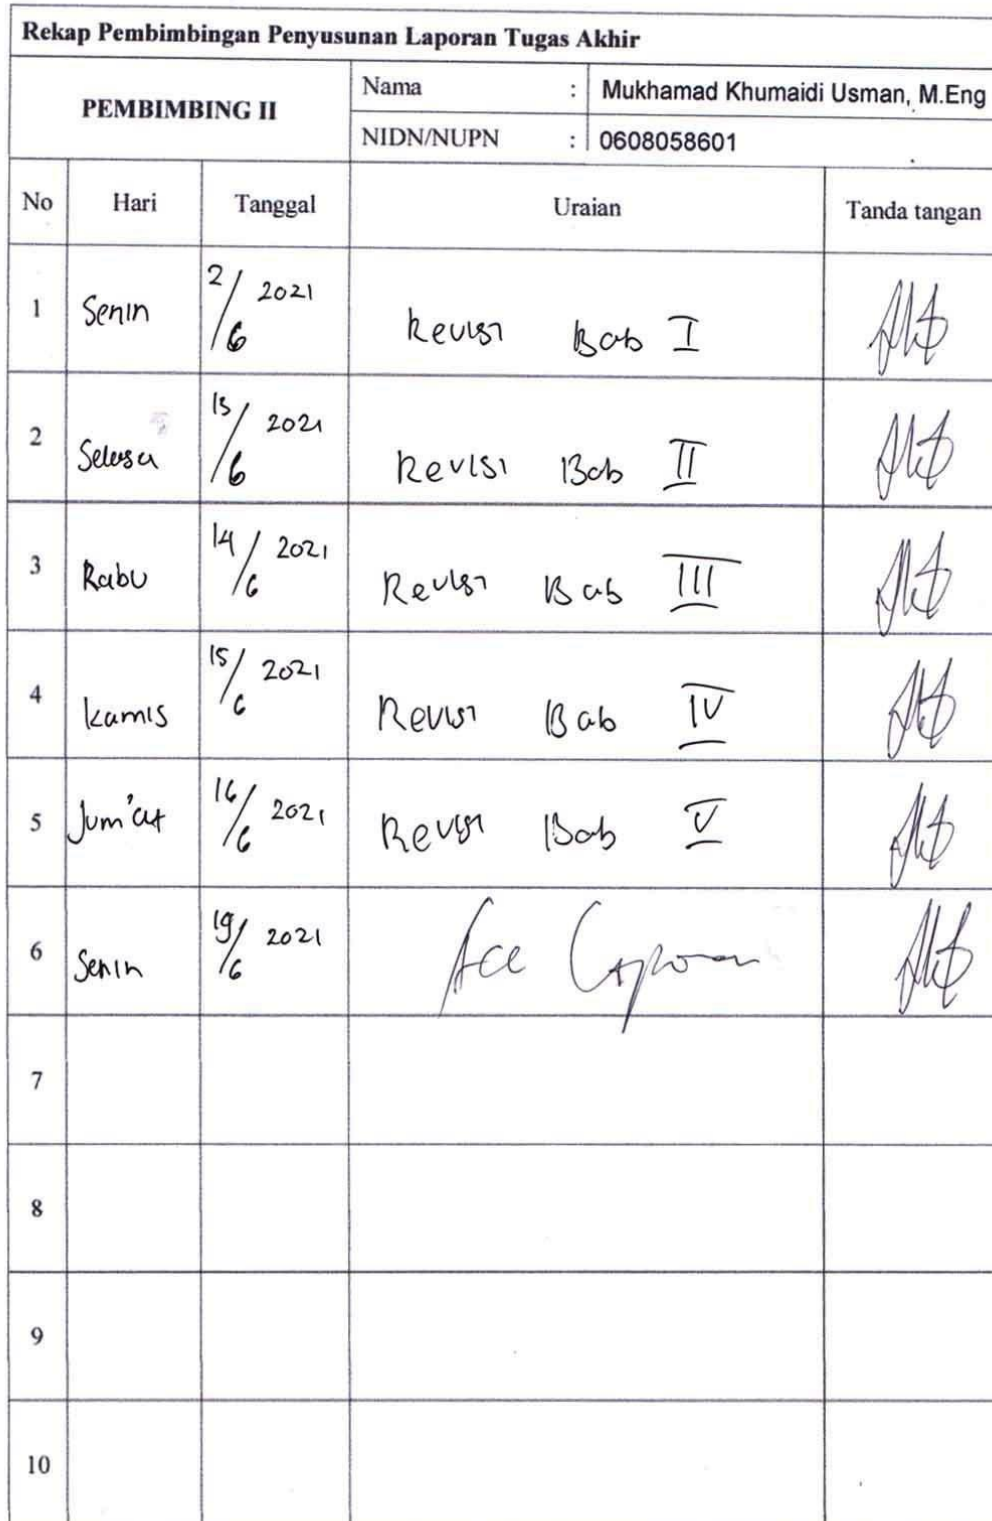 Rekap Pembimbingan Penyusunan Laporan Tugas Akhir
PEMBIMBING II
Nama : Mukhamad Khumaidi Usman, M.Eng
NIDN/NUPN : 0608058601
No Hari Tanggal Uraian Tanda tangan
1 Senin 2/6 2021 Revisi Bab I
2 Selasa 13/6 2021 Revisi Bab II
3 Rabu 14/6 2021 Revisi Bab III
4 Kamis 15/6 2021 Revisi Bab IV
5 Jum'at 16/6 2021 Revisi Bab V
6 Senin 19/6 2021 Acc Laporan
7
8
9
10